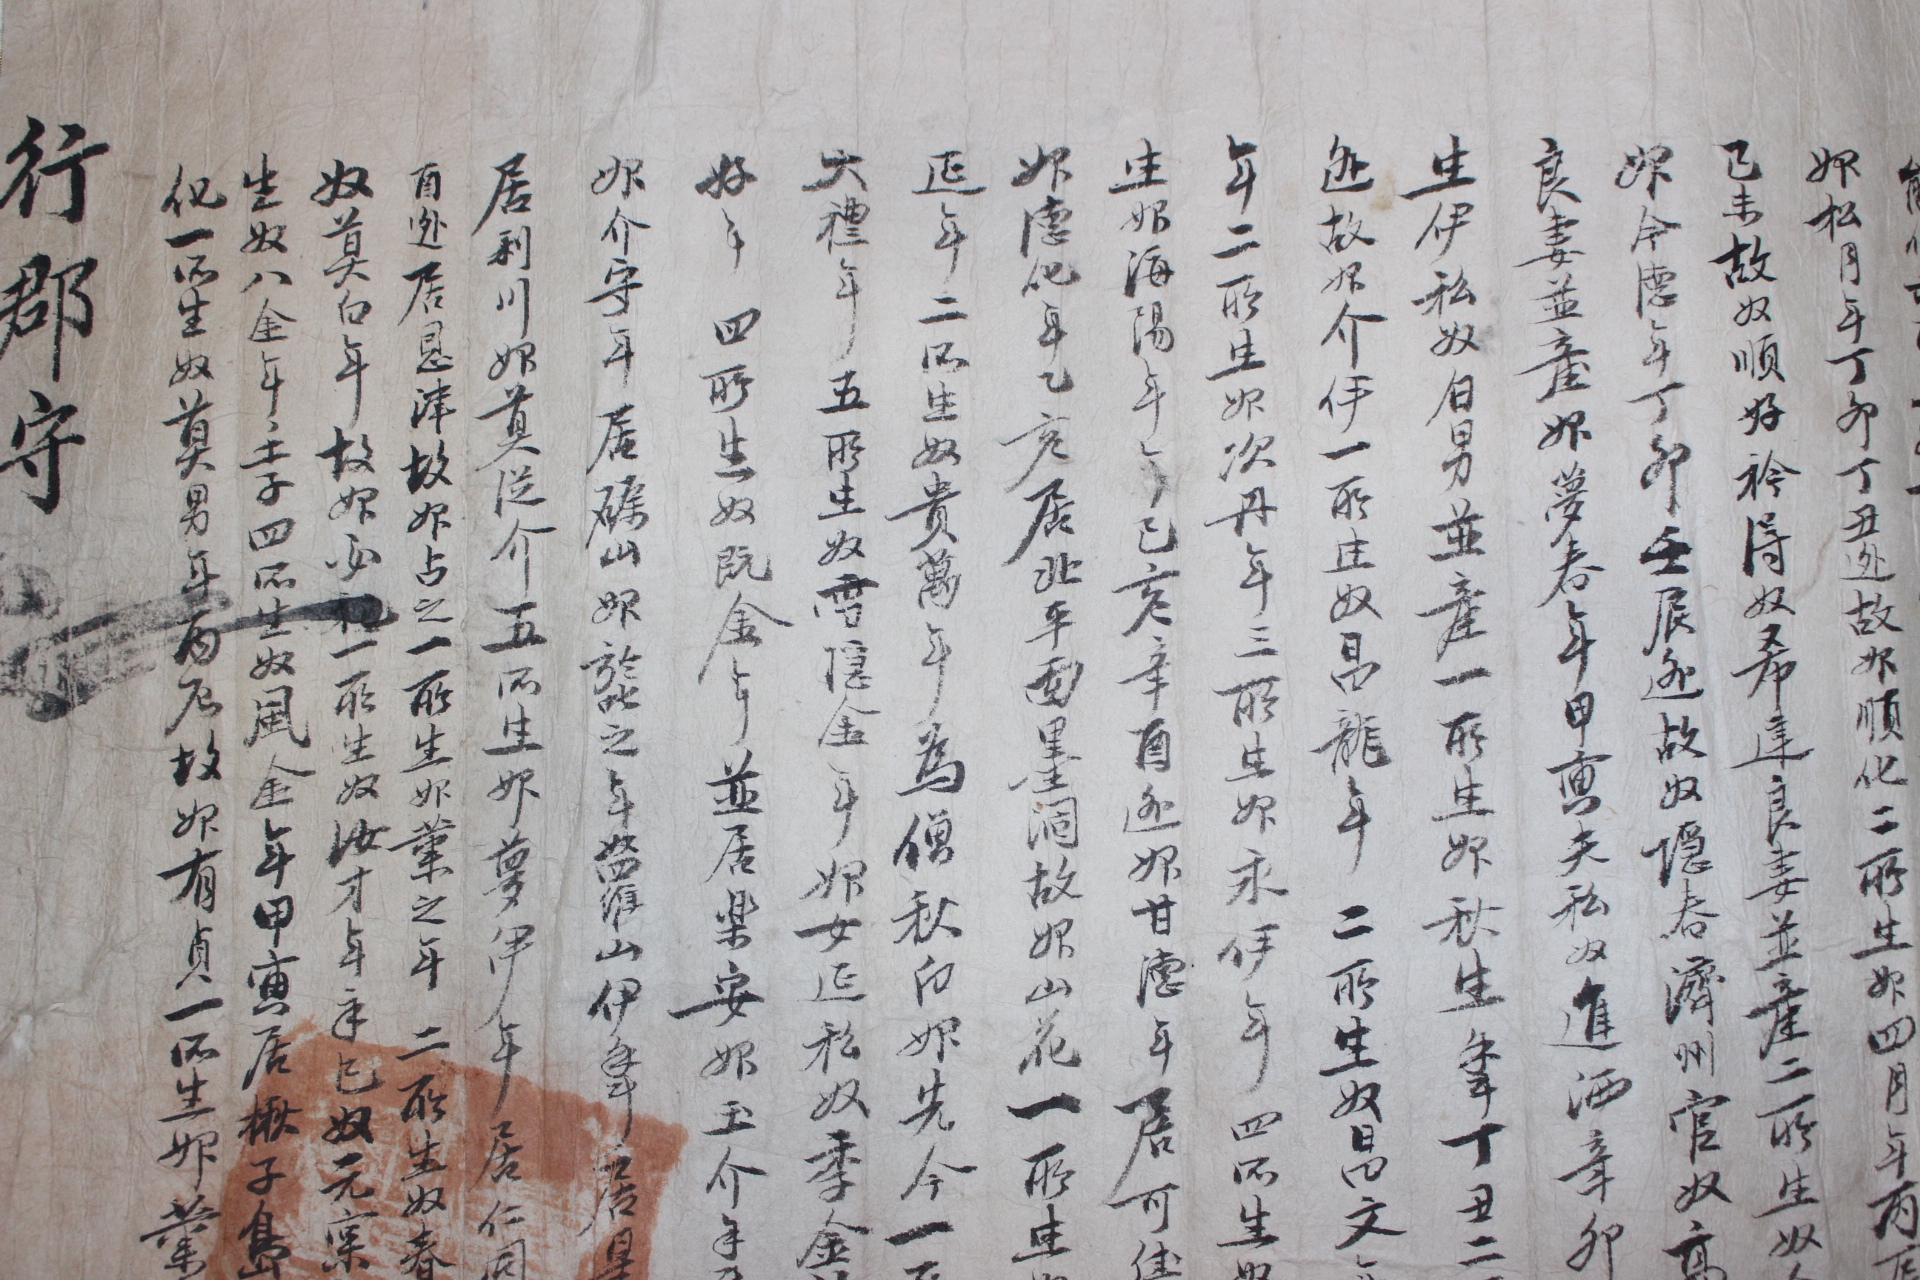 婢松月年丁卯丁丑逃故婢順化二所生婢四月年丙辰
己未故奴順好衿得奴希達良妻並産二所生奴
婢今德年丁卯壬辰逃故奴隱春濟州官奴高
良妻並産婢夢春年甲寅夫私奴進洒辛卯
生伊私奴日男並産一所生婢秋生年丁丑二
逃故婢介伊一所生奴昌龍年 二所生奴昌文
年二所生婢次丹年三所生婢永伊年四所生奴
生婢海陽年己亥辛酉逃婢甘德年居可佳
婢德化年乙亥居北平面墨洞故婢山花一所生
延年二所生奴貴萬年為僧秋白婢先今一
大禮年五所生奴雪隱金年婢女延私奴季金
好年 四所生奴旣金年並居樂安婢玉介年
婢介守年居礪山婢於屯之年婢羅山伊年居
居利川婢莫従介五所生婢夢伊年居仁同
酉逃居恩津故婢占之一所生婢業之年二所生奴春
奴莫白年故婢必礼一所生奴汝才年辛巳奴元
生奴八金年壬子四所生奴風金年甲寅居楸子島
化一所生奴莫男年丙辰故婢有貞一所生婢業
行郡守